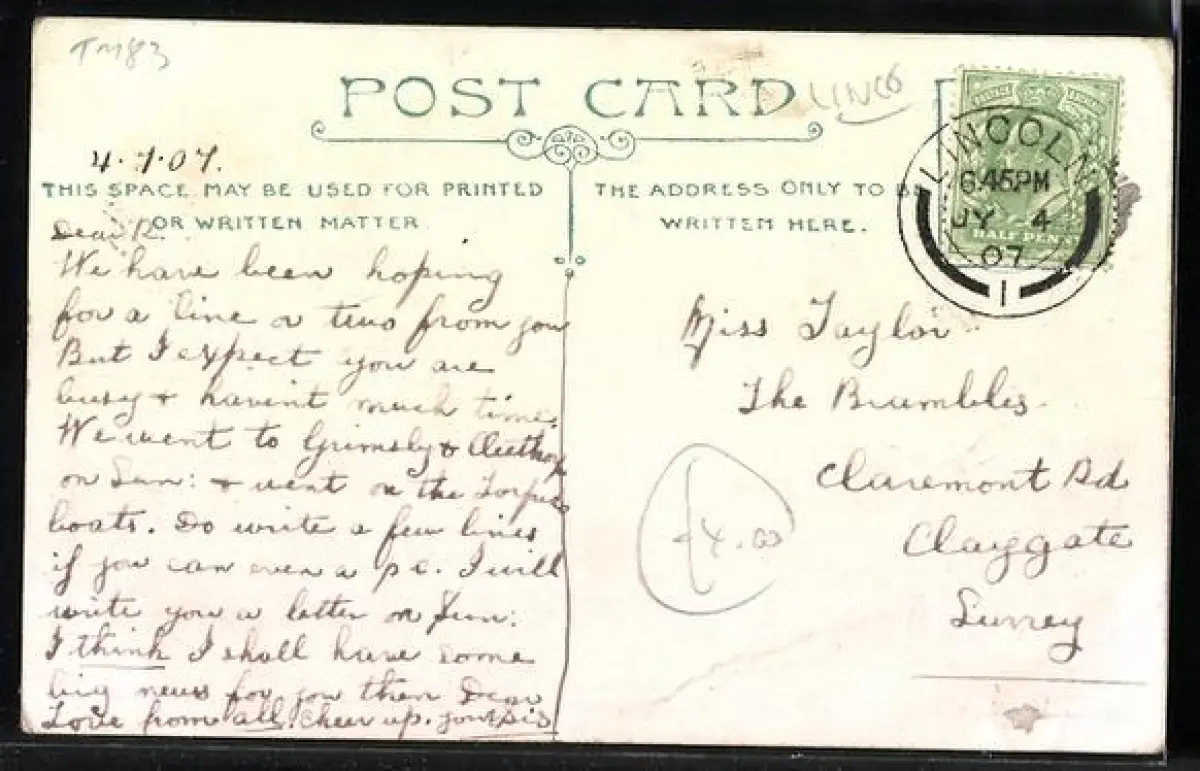 TM83
POST CARD
LINCO
4.7.07.
THIS SPACE MAY BE USED FOR PRINTED
OR WRITTEN MATTER
THE ADDRESS ONLY TO BE
WRITTEN HERE.
LINCOLN
6.45PM
JY 4
07
1
HALF PENNY
Dear R.
We have been hoping
for a line or two from you
But I expect you are
busy & havent much time.
We went to Grimsby & Cleethorp
on Sun: & went on the Torpedo
boats. Do write a few lines
if you can even a p c. I will
write you a letter on Sun:
I think I shall have some
big news for you then Dear
Love from all. Cheer up. your Sis
Miss Taylor
The Brumbles
Claremont Rd
Claygate
Surrey
£4.00